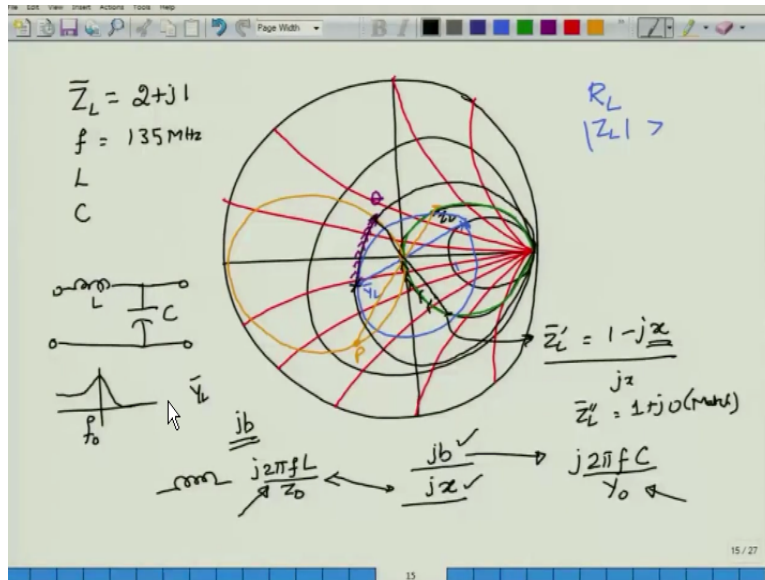 File Edit View Insert Actions Tools Help
Page Width
B I
Z̅L = 2+j1
f = 135 MHz
L
C
RL
|ZL| >
Q
ZL
YL
P
L
C
Z̅L' = 1-jx
jx
Z̅L'' = 1+j0 (Match)
f0
Y̅L
jb
j2πfL
Z0
jb
jx
j2πfC
Y0
15 / 27
15